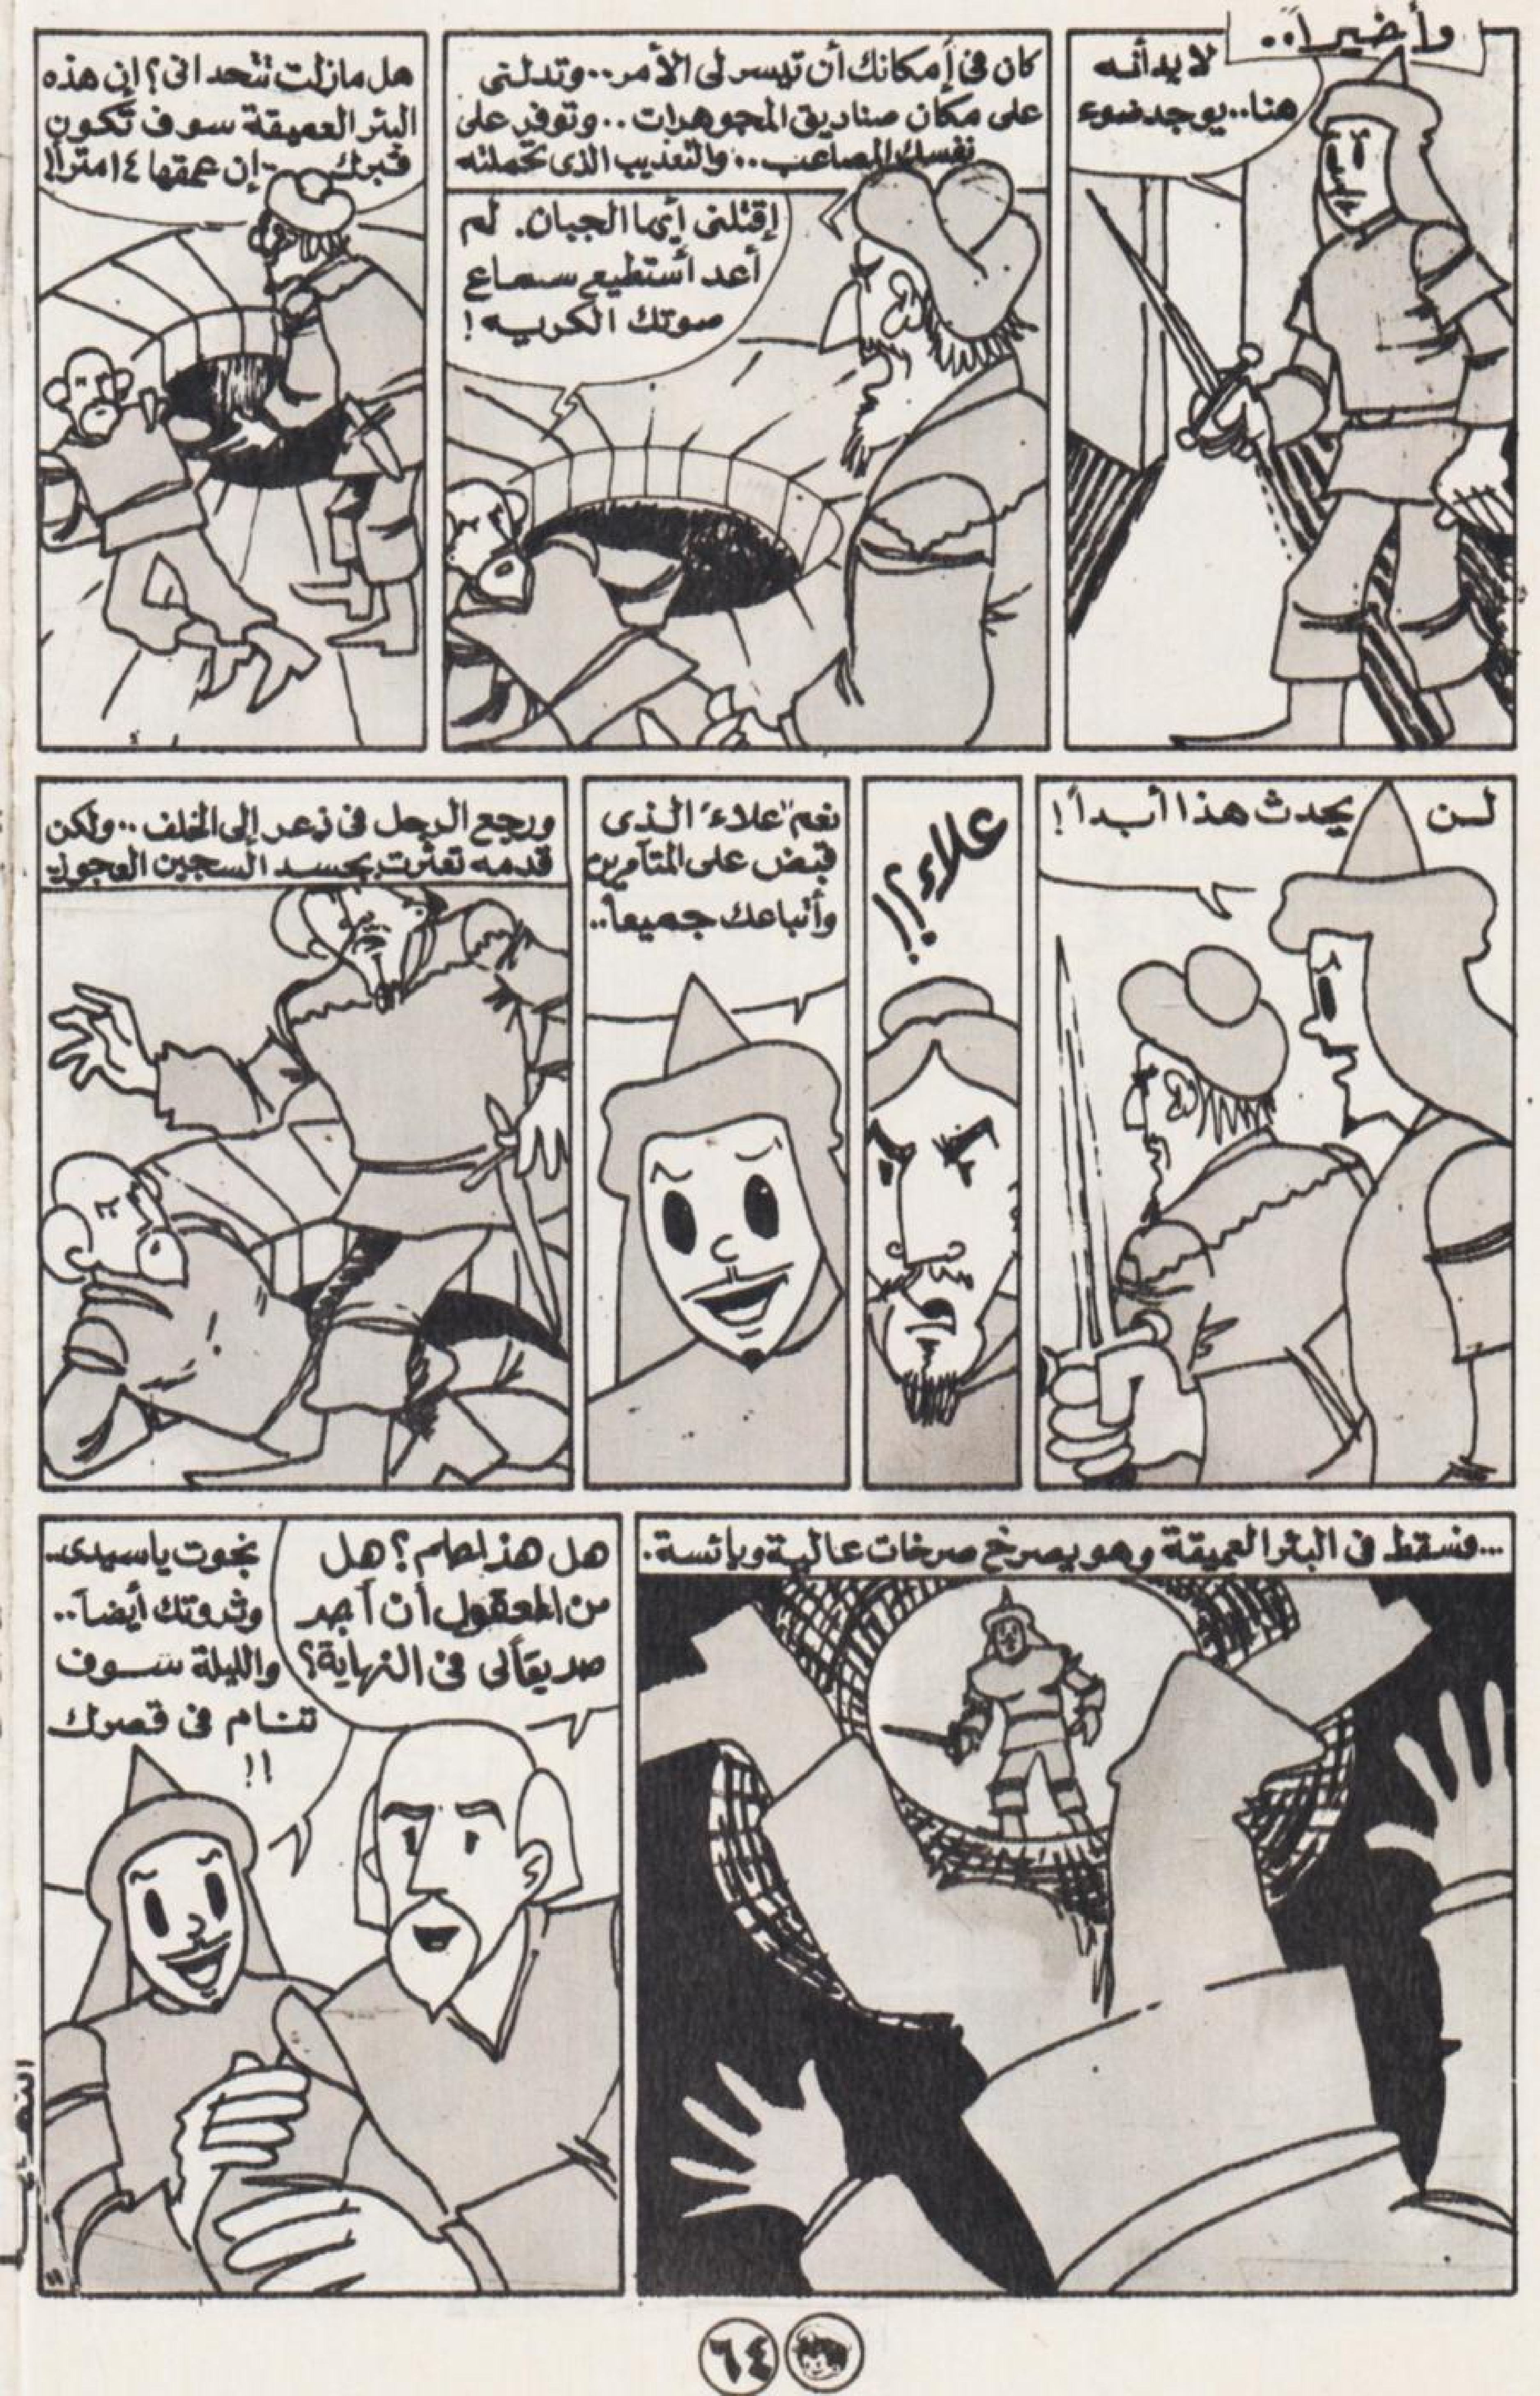 وأخيراً..
لا بد أنه
هنا.. يوجد ضوء
كان فى إمكانك أن تيسر لى الأمر.. وتدلنى
على مكان صناديق المجوهرات.. وتوفر على
نفسك المصاعب.. والتعذيب الذى تحملته
إقتلنى أيها الجبان. لم
أعد أستطيع سماع
صوتك الكريه!
هل مازلت تتحدانى؟ إن هذه
البئر العميقة سوف تكون
قبرك.. إن عمقها ١٤ متراً!!
لن يحدث هذا أبداً!
علاء؟!
نعم "علاء" الذى
قبض على المتآمرين
وأتباعك جميعاً..
ورجع الرجل فى ذعر إلى الخلف.. ولكن
قدمه تعثرت بجسد السجين العجوز
...فسقط فى البئر العميقة وهو يصرخ صرخات عالية ويائسة.
هل هذا حلم؟ هل
من المعقول أن أجد
صديقاً لى فى النهاية؟
نجوت ياسيدى..
وثروتك أيضاً..
والليلة سوف
تنام فى قصرك
!!
١١
٦٤